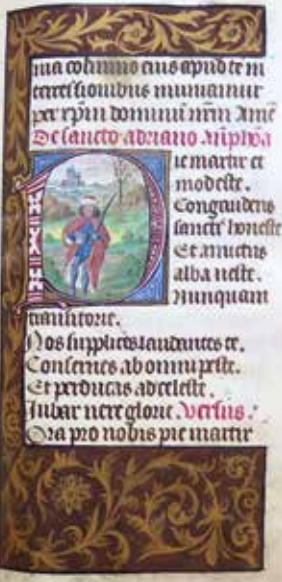 nia colimus eius apud te in
tercessionibus muniamur
per xpm dominu nrm Amē
De sancto adriano Antiphōa
ie martir et
modeste.
Congaudens
sancte honeste
Et amictus
alba veste.
Nunquam
transitorie.
Nos supplices laudantes te.
Conserves ab omni peste.
Et perducas ad celeste.
Jubar vere glorie. Versus.
Ora pro nobis pie martir